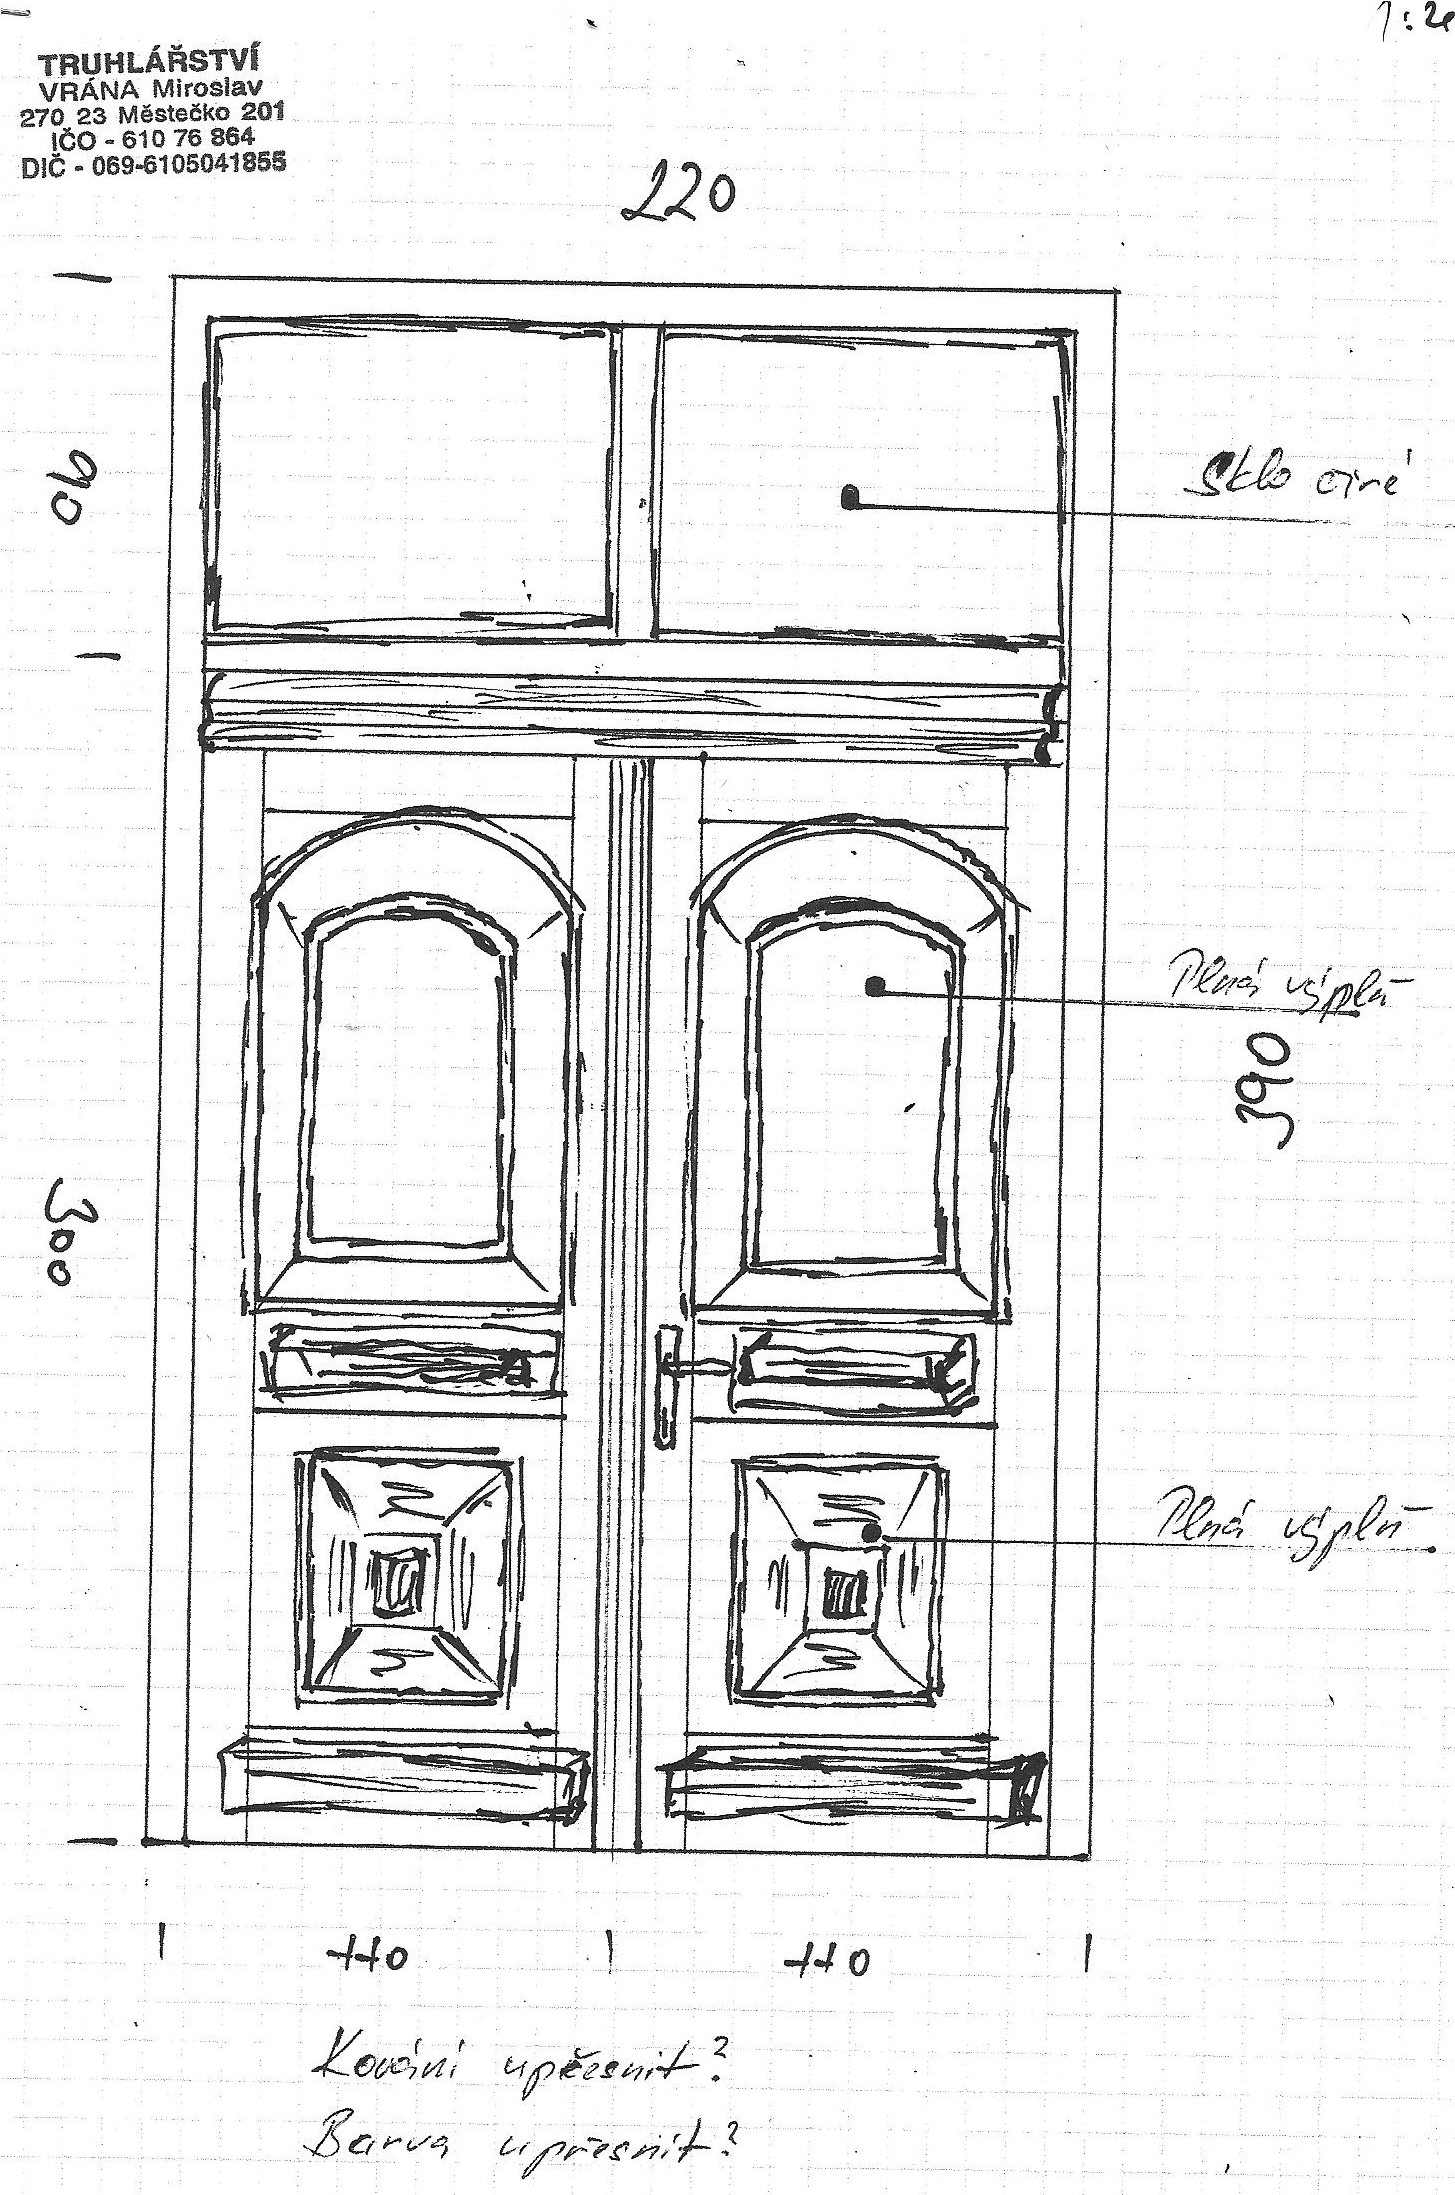 1:20
TRUHLÁŘSTVÍ
VRÁNA Miroslav
270 23 Městečko 201
IČO - 610 76 864
DIČ - 069-6105041855
220
90
Sklo čiré
Plná výplň
390
300
Plná výplň
110
110
Kování upřesnit?
Barva upřesnit?